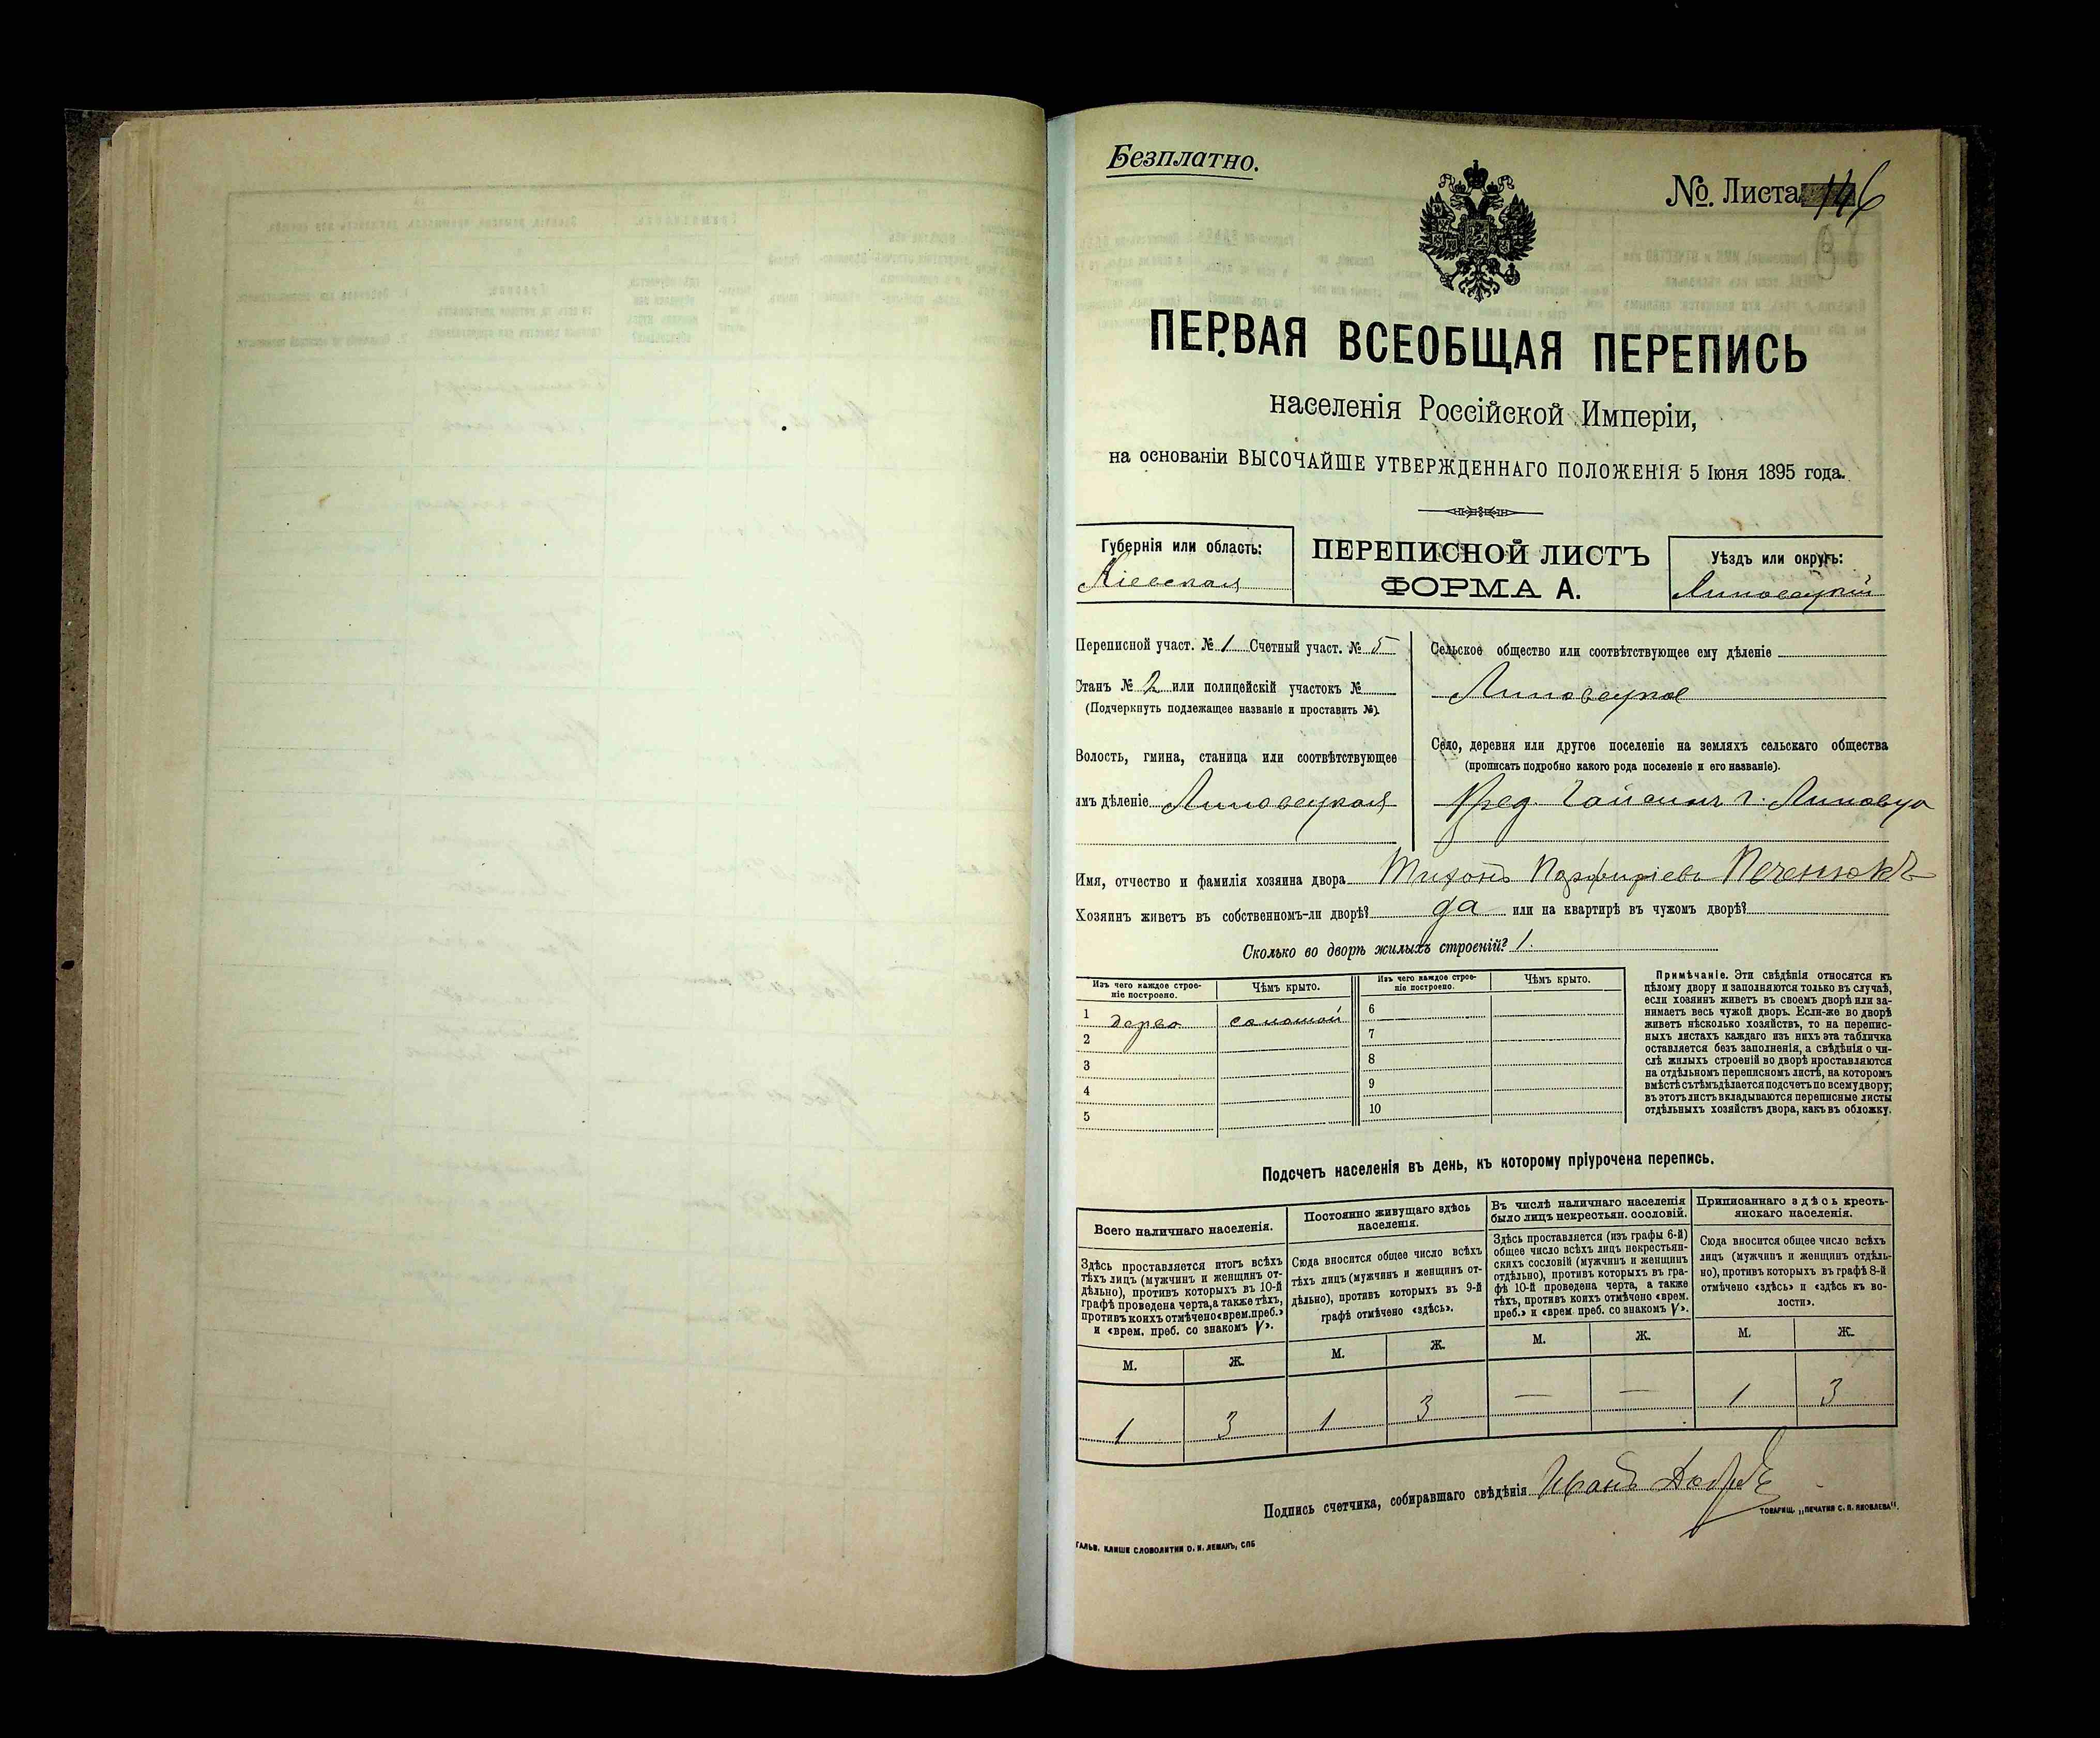 Безплатно.
№. Листа 146
ПЕРВАЯ ВСЕОБЩАЯ ПЕРЕПИСЬ
населенія Россійской Имперіи,
на основаніи ВЫСОЧАЙШЕ УТВЕРЖДЕННАГО ПОЛОЖЕНІЯ 5 Іюня 1895 года.
Губернія или область:
Кіевская
ПЕРЕПИСНОЙ ЛИСТЪ
ФОРМА А.
Уѣздъ или округъ:
Липовецкій
Переписной участ. № 1 Счетный участ. № 5
Станъ № 2 или полицейскій участокъ №
(Подчеркнуть подлежащее названіе и проставить №).
Волость, гмина, станица или соотвѣтствующее
имъ дѣленіе Липовецкая
Сельское общество или соотвѣтствующее ему дѣленіе
Липовецкое
Село, деревня или другое поселеніе на земляхъ сельскаго общества
(прописать подробно какого рода поселеніе и его названіе).
Пред. Гайсинъ г. Липовца
Имя, отчество и фамилія хозяина двора Тихонъ Порфиріевъ Печенюкъ
Хозяинъ живетъ въ собственномъ-ли дворѣ? да или на квартирѣ въ чужомъ дворѣ?
Сколько во дворѣ жилыхъ строеній? 1.
Изъ чего каждое строе-
ніе построено.
Чѣмъ крыто.
Изъ чего каждое строе-
ніе построено.
Чѣмъ крыто.
1 дерево соломой
2
3
4
5
6
7
8
9
10
Примѣчаніе. Эти свѣдѣнія относятся къ
цѣлому двору и заполняются только въ случаѣ,
если хозяинъ живетъ въ своемъ дворѣ или за-
нимаетъ весь чужой дворъ. Если-же во дворѣ
живетъ нѣсколько хозяйствъ, то на перепис-
ныхъ листахъ каждаго изъ нихъ эта табличка
оставляется безъ заполненія, а свѣдѣнія о чи-
слѣ жилыхъ строеній во дворѣ проставляются
на отдѣльномъ переписномъ листѣ, на которомъ
вмѣстѣ съ тѣмъ дѣлается подсчетъ по всему двору;
въ этотъ листъ вкладываются переписные листы
отдѣльныхъ хозяйствъ двора, какъ въ обложку.
Подсчетъ населенія въ день, къ которому пріурочена перепись.
Всего наличнаго населенія.
Здѣсь проставляется итогъ всѣхъ
тѣхъ лицъ (мужчинъ и женщинъ от-
дѣльно), противъ которыхъ въ 10-й
графѣ проведена черта, а также тѣхъ,
противъ коихъ отмѣчено «врем. преб.»
и «врем. преб. со знакомъ V».
Постоянно живущаго здѣсь
населенія.
Сюда вносится общее число всѣхъ
тѣхъ лицъ (мужчинъ и женщинъ от-
дѣльно), противъ которыхъ въ 9-й
графѣ отмѣчено «здѣсь».
Въ числѣ наличнаго населенія
было лицъ некрестьян. сословій.
Здѣсь проставляется (изъ графы 6-й)
общее число всѣхъ лицъ некрестьян-
скихъ сословій (мужчинъ и женщинъ
отдѣльно), противъ которыхъ въ гра-
фѣ 10-й проведена черта, а также
тѣхъ, противъ коихъ отмѣчено «врем.
преб.» и «врем. преб. со знакомъ V».
Приписаннаго здѣсь кресть-
янскаго населенія.
Сюда вносится общее число всѣхъ
лицъ (мужчинъ и женщинъ отдѣль-
но), противъ которыхъ въ графѣ 8-й
отмѣчено «здѣсь» и «здѣсь къ во-
лости».
М. Ж. М. Ж. М. Ж. М. Ж.
1 3 1 3 — — 1 3
Подпись счетчика, собиравшаго свѣдѣнія Иванъ
ТОВАРИЩ. „ПЕЧАТНЯ С. П. ЯКОВЛЕВА“.
ГАЛЬВ. КЛИШЕ СЛОВОЛИТНИ О. И. ЛЕМАНЪ, СПБ